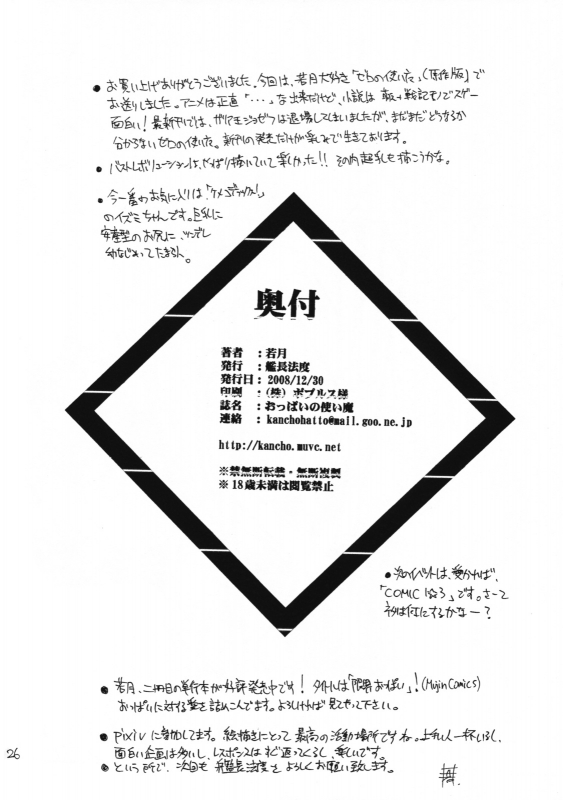 ●お買い上げありがとうございました。今回は、若月大好き「ゼロの使い魔」(原作版)で
お送りしました。アニメは正直「・・・」な出来だけど、小説は 戦記モノでスゲー
面白い！最新刊では、ガリア王ジョゼフは退場してしまいましたが、まだまだどうなるか
分からないゼロの使い魔。新刊の発売だけが楽しみで生きております。
●バストレボリューションは、やっぱり描いていて楽しかった!! その内起乳も描こうかな。
●今一番のお気に入りは「ケメコデラックス!」
のイズミちゃんです。巨乳に
安産型のお尻に、ツンデレ
幼なじみってたまらん。
奥付
著者　：若月
発行　：艦長法度
発行日：2008/12/30
印刷　：(株) ポプルス様
誌名　：おっぱいの使い魔
連絡　：kanchohatto@mail.goo.ne.jp
http://kancho.muvc.net
※禁無断転載・無断複製
※18歳未満は閲覧禁止
●次のイベントは、受かれば、
「COMIC1☆3」です。さーて
ネタは何にするかなー？
●若月、二冊目の単行本が好評発売中です！ タイトルは「限界おっぱい」！(MujinComics)
おっぱいに対する愛を詰めこんでます。よろしければ見てやって下さい。
●pixivに参加してます。絵描きにとって最高の活動場所ですね。上手い人一杯いるし、
面白い企画は多いし、レスポンスはすぐ返ってくるし、楽しいです。
●という所で、次回も艦長法度をよろしくお願い致します。
26